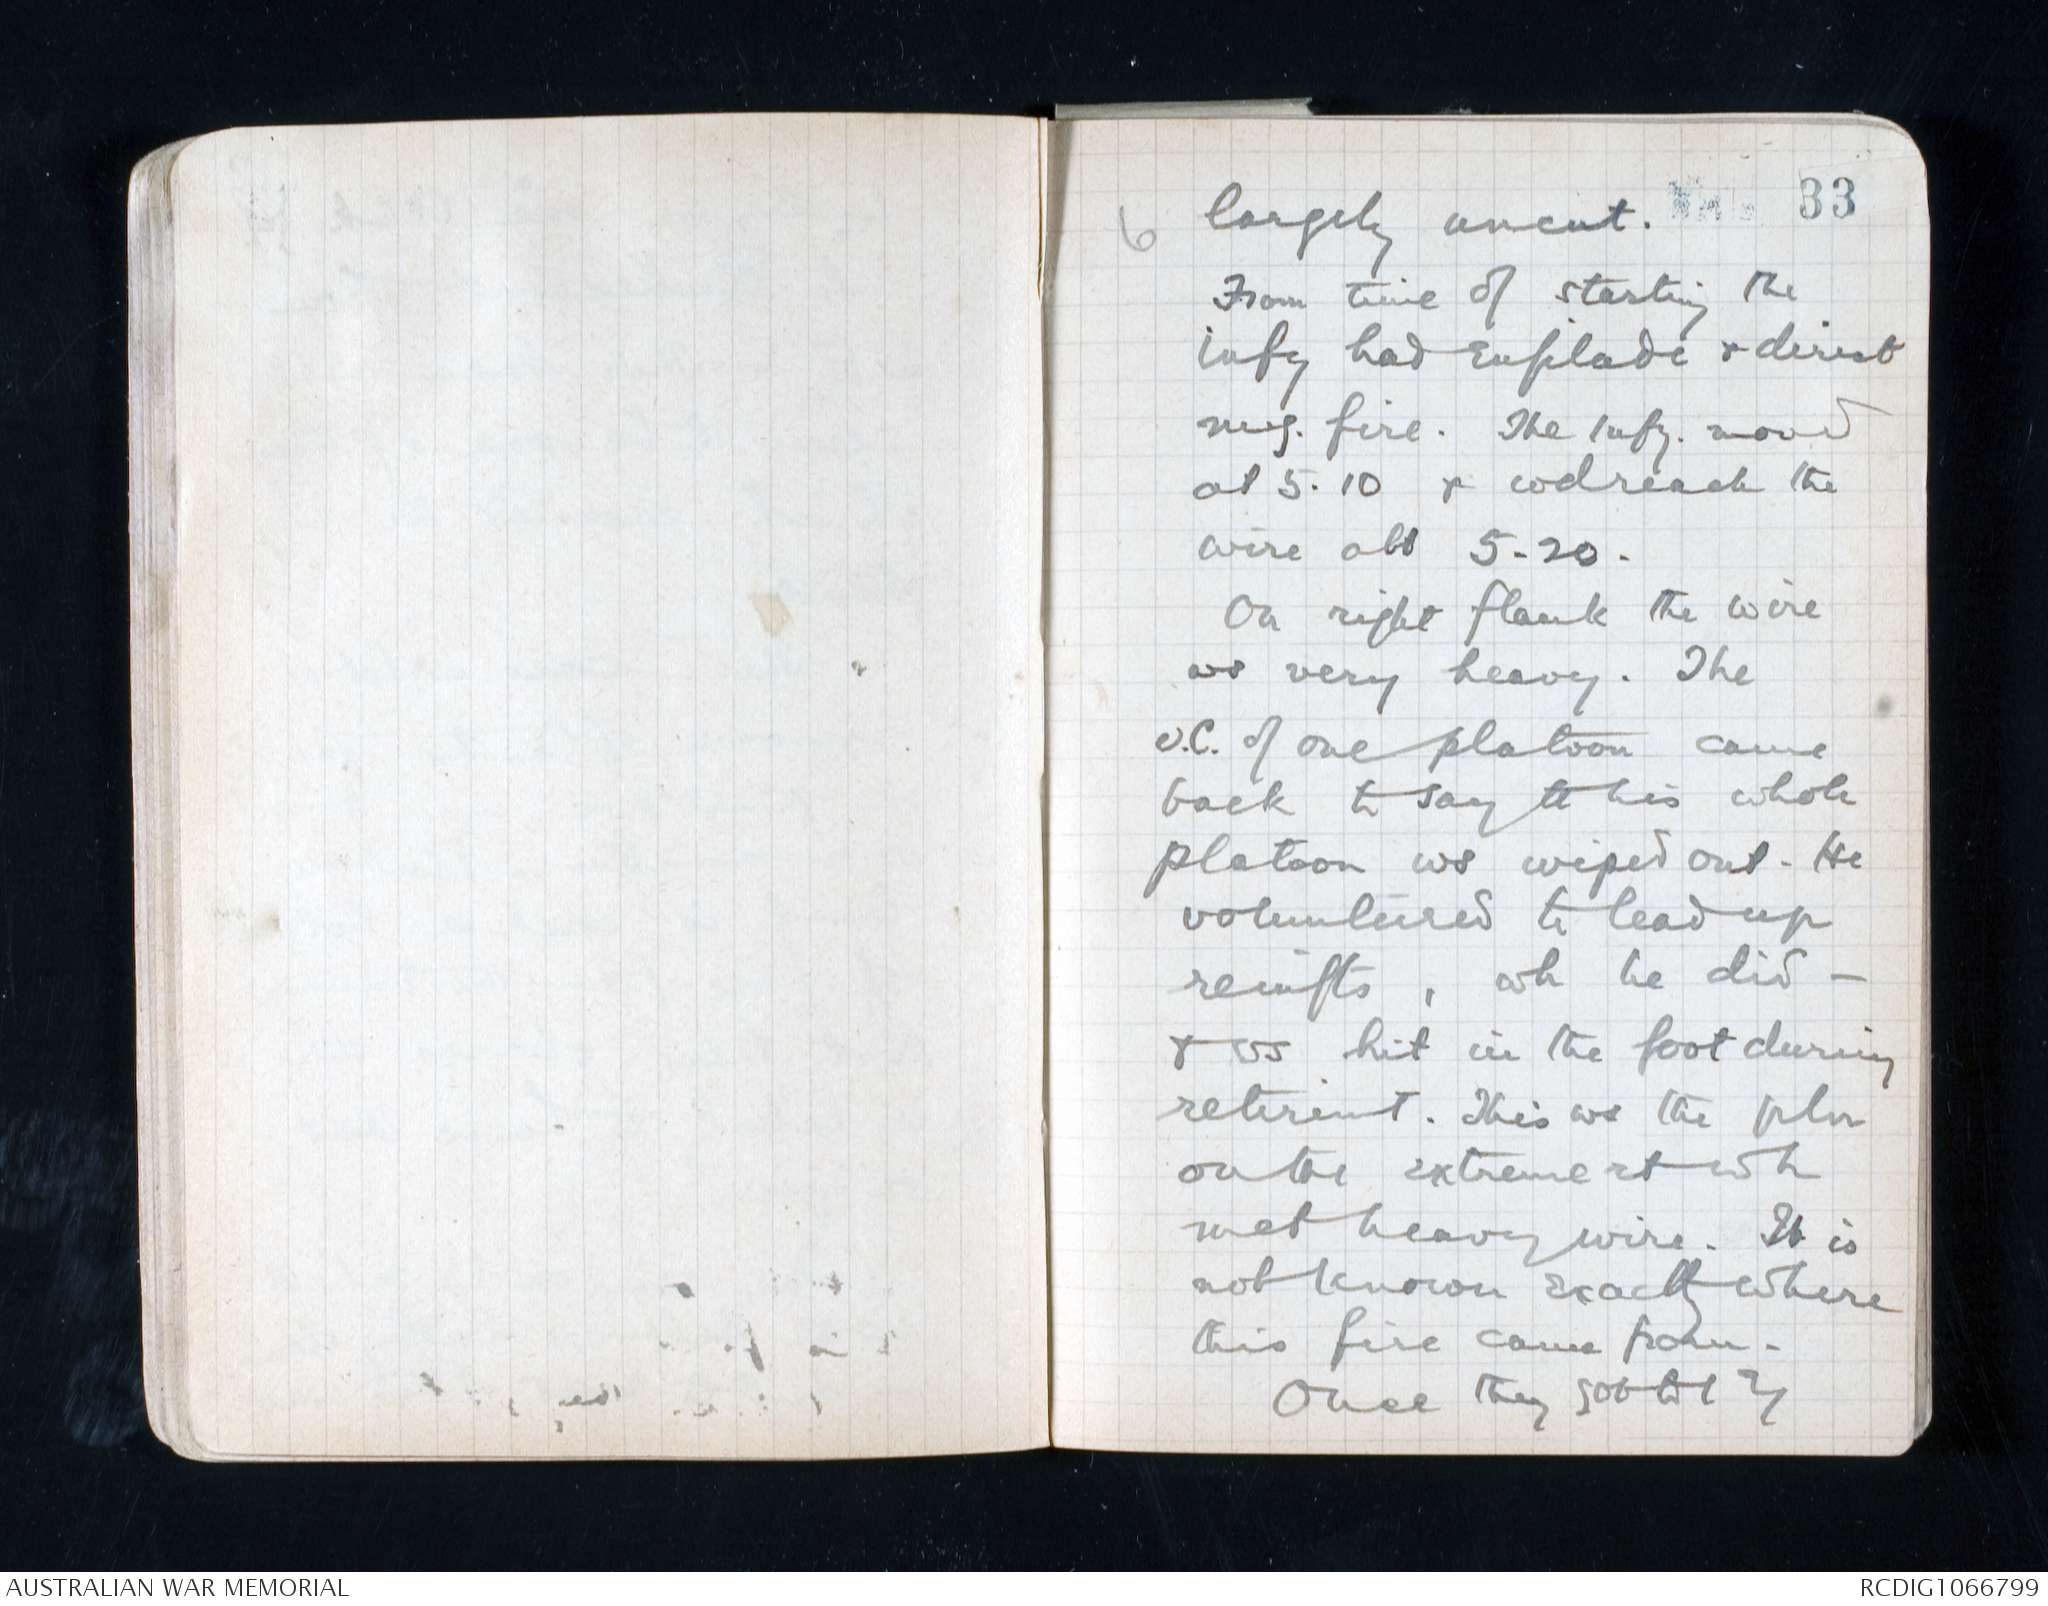 33
6 largely uncut.
From time of starting the
infy had enfilade & direct
m.g. fire. The infy. moved
at 5.10 & wd reach the
wire abt 5-20.
On right flank the wire
ws very heavy. The
O.C. of one platoon came
back to say tt his whole
platoon ws wiped out. He
volunteered to lead up
reinfts, wh he did -
& ws hit in the foot during
retiremt. This ws the pln
on the extreme rt wh
met heavy wire. It is
not known exactly where
this fire came from.
Once they got
AUSTRALIAN WAR MEMORIAL
RCDIG1066799